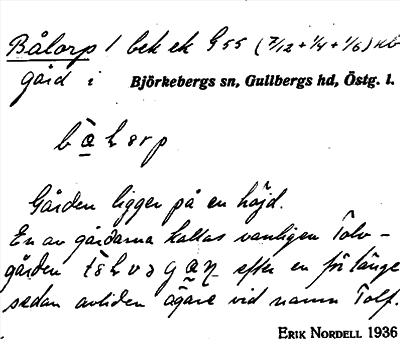 Bålorp 1 bek ek G 55 (7/12 + 1/4 + 1/6) nb
gård i Björkebergs sn, Gullbergs hd, Östg. l.
Gården ligger på en höjd.
En av gårdarna kallas vanligen Tolv-
gården efter en för länge
sedan avliden ägare vid namn Tolf.
ERIK NORDELL 1936